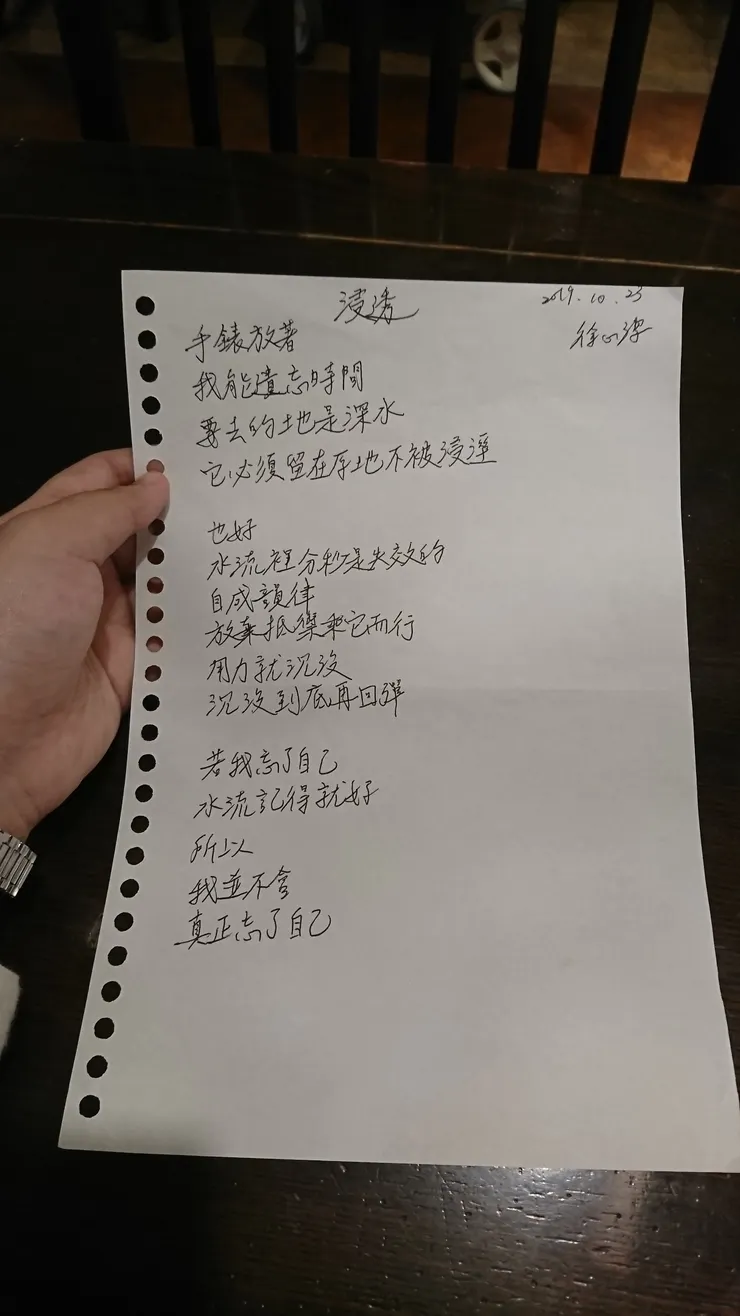 浸透
2019.10.23
徐心潔
手錶放著
我能遺忘時間
要去的地是深水
它必須留在原地不被浸溼
也好
水流裡分秒是失效的
自成韻律
放棄抵禦乘它而行
用力就沉沒
沉沒到底再回彈
若我忘了自己
水流記得就好
所以
我並不會
真正忘了自己